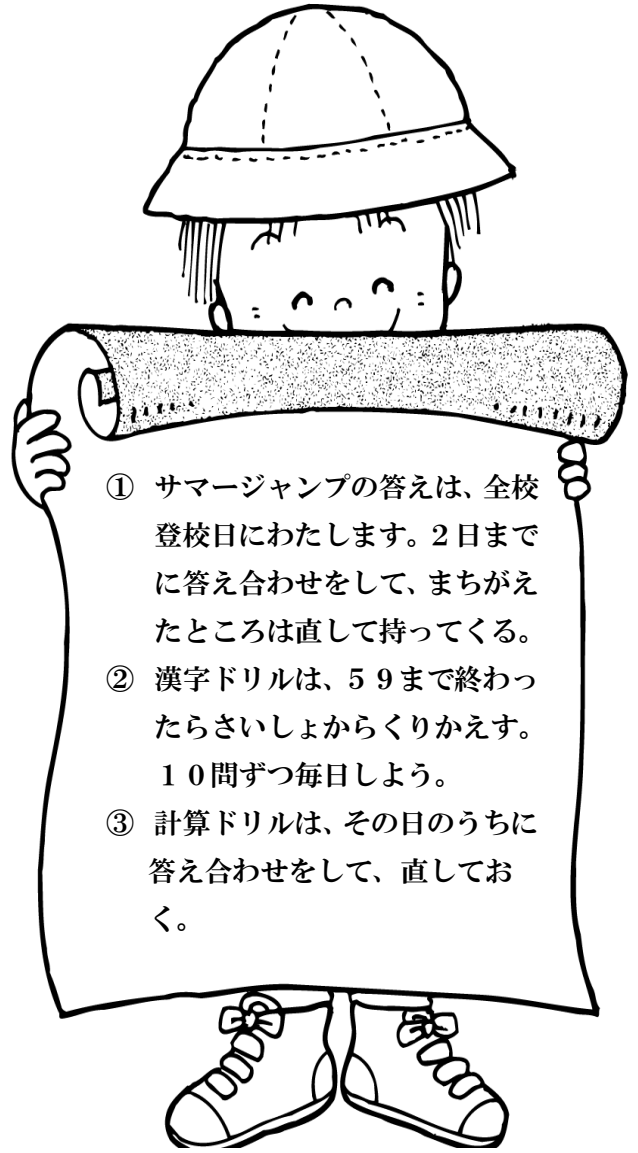 ① サマージャンプの答えは、全校
登校日にわたします。２日まで
に答え合わせをして、まちがえ
たところは直して持ってくる。
② 漢字ドリルは、５９まで終わっ
たらさいしょからくりかえす。
１０問ずつ毎日しよう。
③ 計算ドリルは、その日のうちに
答え合わせをして、直してお
く。